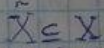 X̃ ⊆ X